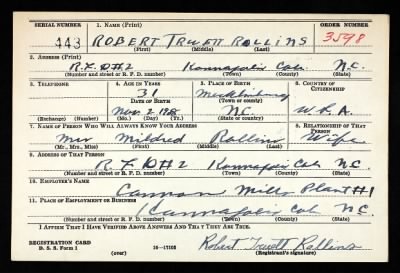 SERIAL NUMBER 1. NAME (Print) ORDER NUMBER
443 ROBERT TRUETT ROLLINS 3598
(First) (Middle) (Last)
2. ADDRESS (Print)
R.F.D #2 Kannapolis Cab. N.C.
(Number and street or R. F. D. number) (Town) (County) (State)
3. TELEPHONE 4. AGE IN YEARS 5. PLACE OF BIRTH 6. COUNTRY OF CITIZENSHIP
31 Mecklenburg
DATE OF BIRTH (Town or county)
Nov. 2 N.C. U.S.A.
(Exchange) (Number) (Mo.) (Day) (Yr.) (State or country)
7. NAME OF PERSON WHO WILL ALWAYS KNOW YOUR ADDRESS 8. RELATIONSHIP OF THAT PERSON
Mrs Mildred Rollins Wife
(Mr., Mrs., Miss) (First) (Middle) (Last)
9. ADDRESS OF THAT PERSON
R.F.D #2 Kannapolis Cab. N.C.
(Number and street or R. F. D. number) (Town) (County) (State)
10. EMPLOYER'S NAME
Cannon Mills Plant #1
11. PLACE OF EMPLOYMENT OR BUSINESS
Kannapolis Cab. N.C.
(Number and street or R. F. D. number) (Town) (County) (State)
I AFFIRM THAT I HAVE VERIFIED ABOVE ANSWERS AND THAT THEY ARE TRUE.
REGISTRATION CARD
D. S. S. Form 1 16—17105 Robert Truett Rollins
(over) (Registrant's signature)